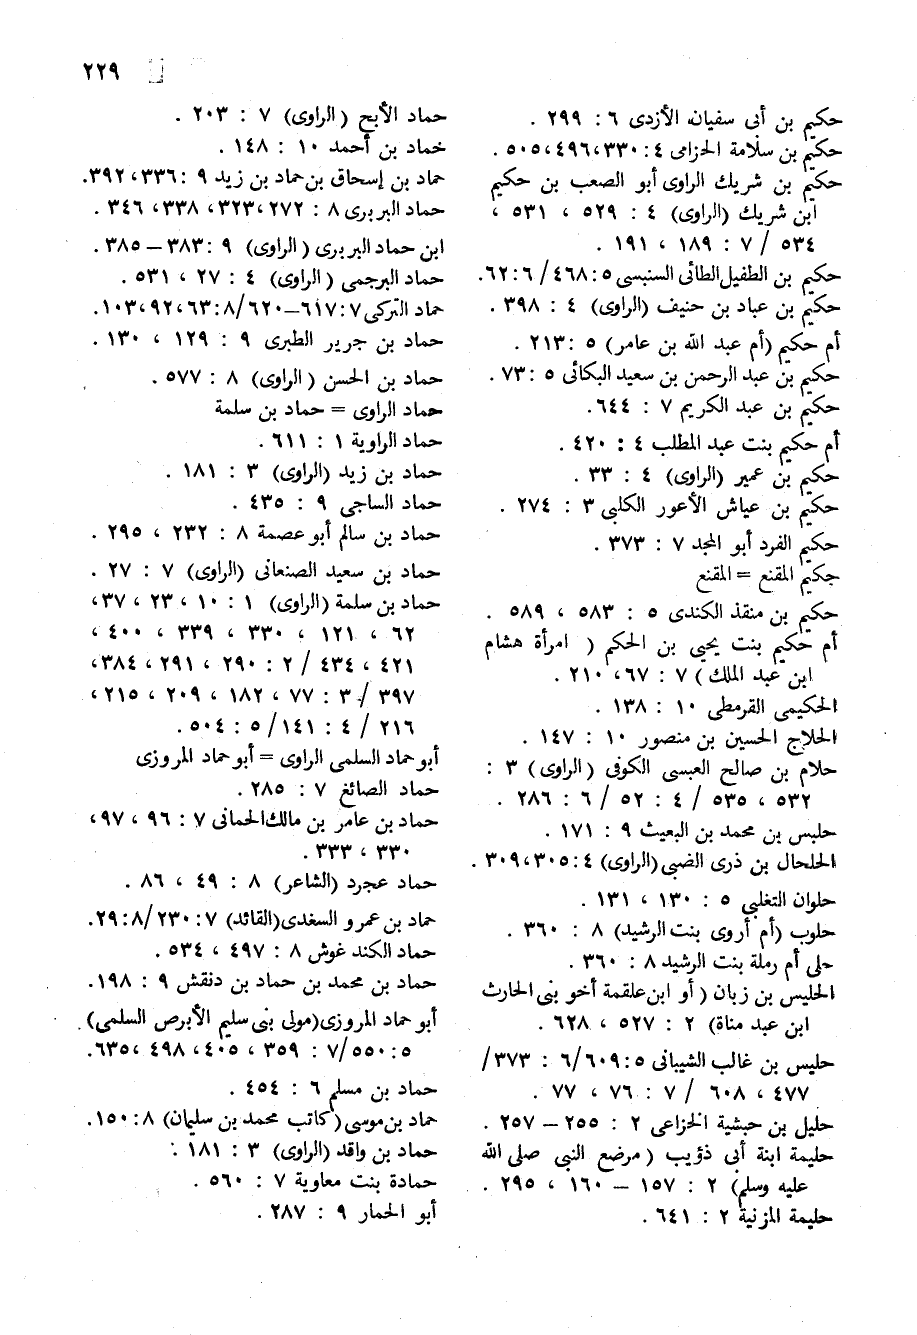 ٢٢٩
حكيم بن أبى سفيان الأزدى ٦ : ٢٩٩ .
حكيم بن سلامة الحزامى ٤ : ٣٣٠، ٤٩٦، ٥٠٥ .
حكيم بن شريك الراوى أبو الصعب بن حكيم
ابن شريك (الراوى) ٤ : ٥٢٩ ، ٥٣١ ،
٥٣٤ / ٧ : ١٨٩ ، ١٩١ .
حكيم بن الطفيل الطائى السنبسى ٥ : ٤٦٨/ ٦ : ٦٢.
حكيم بن عباد بن حنيف (الراوى) ٤ : ٣٩٨ .
أم حكيم (أم عبد الله بن عامر) ٥ : ٢١٣ .
حكيم بن عبد الرحمن بن سعيد البكائى ٥ : ٧٣ .
حكيم بن عبد الكريم ٧ : ٦٤٤ .
أم حكيم بنت عبد المطلب ٤ : ٤٢٠ .
حكيم بن عمير (الراوى) ٤ : ٣٣ .
حكيم بن عياش الأعور الكلبى ٣ : ٢٧٤ .
حكيم الفرد أبو المجد ٧ : ٣٧٣ .
جكيم المقنع = المقنع
حكيم بن منقذ الكندى ٥ : ٥٨٣ ، ٥٨٩ .
أم حكيم بنت يحيى بن الحكم ( امرأة هشام
ابن عبد الملك ) ٧ : ٦٧، ٢١٠ .
الحكيمى القرمطى ١٠ : ١٣٨ .
الحلاج الحسين بن منصور ١٠ : ١٤٧ .
حلام بن صالح العبسى الكوفى (الراوى ) ٣ :
٥٣٢ ، ٥٣٥ / ٤ : ٥٢ / ٦ : ٢٨٦ .
حلبس بن محمد بن البعيث ٩ : ١٧١ .
الحلحال بن ذرى الضبى (الراوى) ٤ : ٣٠٥، ٣٠٩ .
حلوان التغلبى ٥ : ١٣٠ ، ١٣١ .
حلوب (أم أروى بنت الرشيد) ٨ : ٣٦٠ .
حلى أم رملة بنت الرشيد ٨ : ٣٦٠ .
الحليس بن زبان ( أو ابن علقمة أخو بنى الحارث
ابن عبد مناة) ٢ : ٥٢٧ ، ٦٢٨ .
حليس بن غالب الشيبانى ٥ : ٦٠٩/ ٦ : ٣٧٣/
٤٧٧ ، ٦٠٨ / ٧ : ٧٦ ، ٧٧ .
حليل بن حبشية الخزاعى ٢ : ٢٥٥ – ٢٥٧ .
حليمة ابنة أبى ذؤيب ( مرضع النبى صلى الله
عليه وسلم) ٢ : ١٥٧ – ١٦٠ ، ٢٩٥ .
حليمة المزنية ٢ : ٦٤١ .
حماد الأبح (الراوى) ٧ : ٢٠٣ .
خماد بن أحمد ١٠ : ١٤٨ .
حماد بن إسحاق بن حماد بن زيد ٩ : ٣٣٦، ٣٩٢.
حماد البربرى ٨ : ٢٧٢، ٣٢٣، ٣٣٨، ٣٤٦ .
ابن حماد البربرى ( الراوى) ٩ : ٣٨٣ – ٣٨٥ .
حماد البرجمى ( الراوى) ٤ : ٢٧ ، ٥٣١ .
حماد التركى ٧ : ٦١٧ – ٦٢٠/ ٨ : ٦٣، ٩٢، ١٠٣.
حماد بن جرير الطبرى ٩ : ١٢٩ ، ١٣٠ .
حماد بن الحسن ( الراوى) ٨ : ٥٧٧ .
حماد الراوى = حماد بن سلمة
حماد الراوية ١ : ٦١١ .
حماد بن زيد (الراوى) ٣ : ١٨١ .
حماد الساجى ٩ : ٤٣٥ .
حماد بن سالم أبو عصمة ٨ : ٢٣٢ ، ٢٩٥ .
حماد بن سعيد الصنعانى (الراوى) ٧ : ٢٧ .
حماد بن سلمة (الراوى) ١ : ١٠ ، ٢٣ ، ٣٧،
٦٢ ، ١٢١ ، ٣٣٠ ، ٣٣٩ ، ٤٠٠ ،
٤٢١ ، ٤٣٤ / ٢ : ٢٩٠ ، ٢٩١ ، ٣٨٤،
٣٩٧ / ٣ : ٧٧ ، ١٨٢ ، ٢٠٩ ، ٢١٥ ،
٢١٦ / ٤ : ١٤١ / ٥ : ٥٠٤ .
أبو حماد السلمى الراوى = أبو حماد المروزى
حماد الصائغ ٧ : ٢٨٥ .
حماد بن عامر بن مالك الحمانى ٧ : ٩٦ ، ٩٧،
٣٣٠ ، ٣٣٣ .
حماد عجرد (الشاعر) ٨ : ٤٩ ، ٨٦ .
حماد بن عمرو السغدى (القائد) ٧ : ٢٣٠/ ٨ : ٢٩.
حماد الكند غوش ٨ : ٤٩٧ ، ٥٣٤ .
حماد بن محمد بن حماد بن دنقش ٩ : ١٩٨.
أبو حماد المروزى (مولى بنى سليم الأبرص السلمى)
٥ : ٥٥٠/ ٧ : ٣٥٩ ، ٤٠٥ ، ٤٩٨ ، ٦٣٥.
حماد بن مسلم ٦ : ٤٥٤ .
حماد بن موسى ( كاتب محمد بن سليمان) ٨ : ١٥٠.
حماد بن واقد (الراوى) ٣ : ١٨١ .
حمادة بنت معاوية ٧ : ٥٦٠ .
أبو الحمار ٩ : ٢٨٧ .